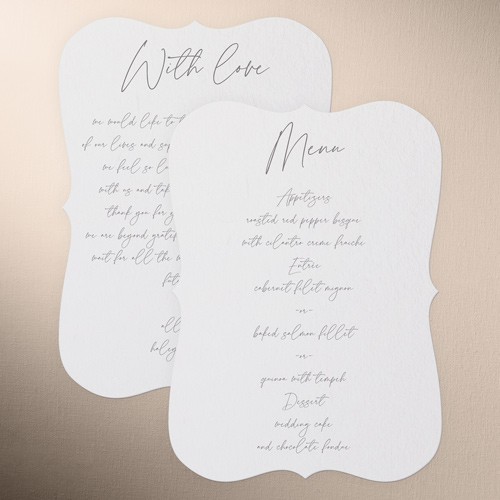 With love
we would like to
of our lives and
we feel so
with us and
thank you for
we are beyond
wait for all the
all
Menu
Appetizers
roasted red pepper bisque
with cilantro creme fraiche
Entrie
cabernet filet mignon
-or-
baked salmon fillet
-or-
quinoa with tempeh
Dessert
wedding cake
and chocolate fondue